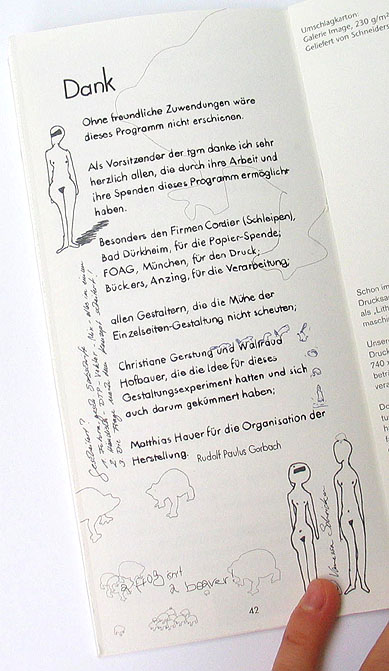 Umschlagkarton:
Galerie Image, 230 g/m
Geliefert von Schneiders
Dank
Ohne freundliche Zuwendungen wäre
dieses Programm nicht erschienen.
Als Vorsitzender der tgm danke ich sehr
herzlich allen, die durch ihre Arbeit und
ihre Spenden dieses Programm ermöglicht
haben.
Besonders den Firmen Cordier (Schleipen),
Bad Dürkheim, für die Papier-Spende;
FOAG, München, für den Druck;
Bückers, Anzing, für die Verarbeitung;
allen Gestaltern, die die Mühe der
Einzelseiten-Gestaltung nicht scheuten;
Christiane Gerstung und Wallraud
Hofbauer, die die Idee für dieses
Gestaltungsexperiment hatten und sich
auch darum gekümmert haben;
Matthias Hauer für die Organisation der
Herstellung. Rudolf Paulus Gorbach
a frog isn't
a beaver
42
Schon im
Drucksa
als „Lith
maschin
Unser
Druck
740 x
betri
vera
Do